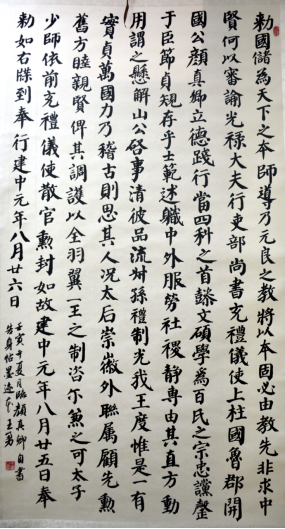 勅國儲為天下之本師導乃元良之教將以本固必由教先非求中
賢何以審諭光祿大夫行吏部尚書充禮儀使上柱國魯郡開
國公顏真卿立德踐行當四科之首懿文碩學為百氏之宗忠讜罄
于臣節貞規存乎士範述職中外服勞社稷靜專由其直方動
用謂之懸解山公啓事清彼品流叔孫禮制光我王度惟是一有
實貞萬國力乃稽古則思其人況太后崇徽外聯屬顧先勳
舊方睦親賢俾其調護以全羽翼一王之制咨尓兼之可太子
少師依前充禮儀使散官勳封如故建中元年八月廿五日奉
勅如右牒到奉行建中元年八月廿六日
壬寅年夏月臨顏真卿自書
告身帖墨迹本王